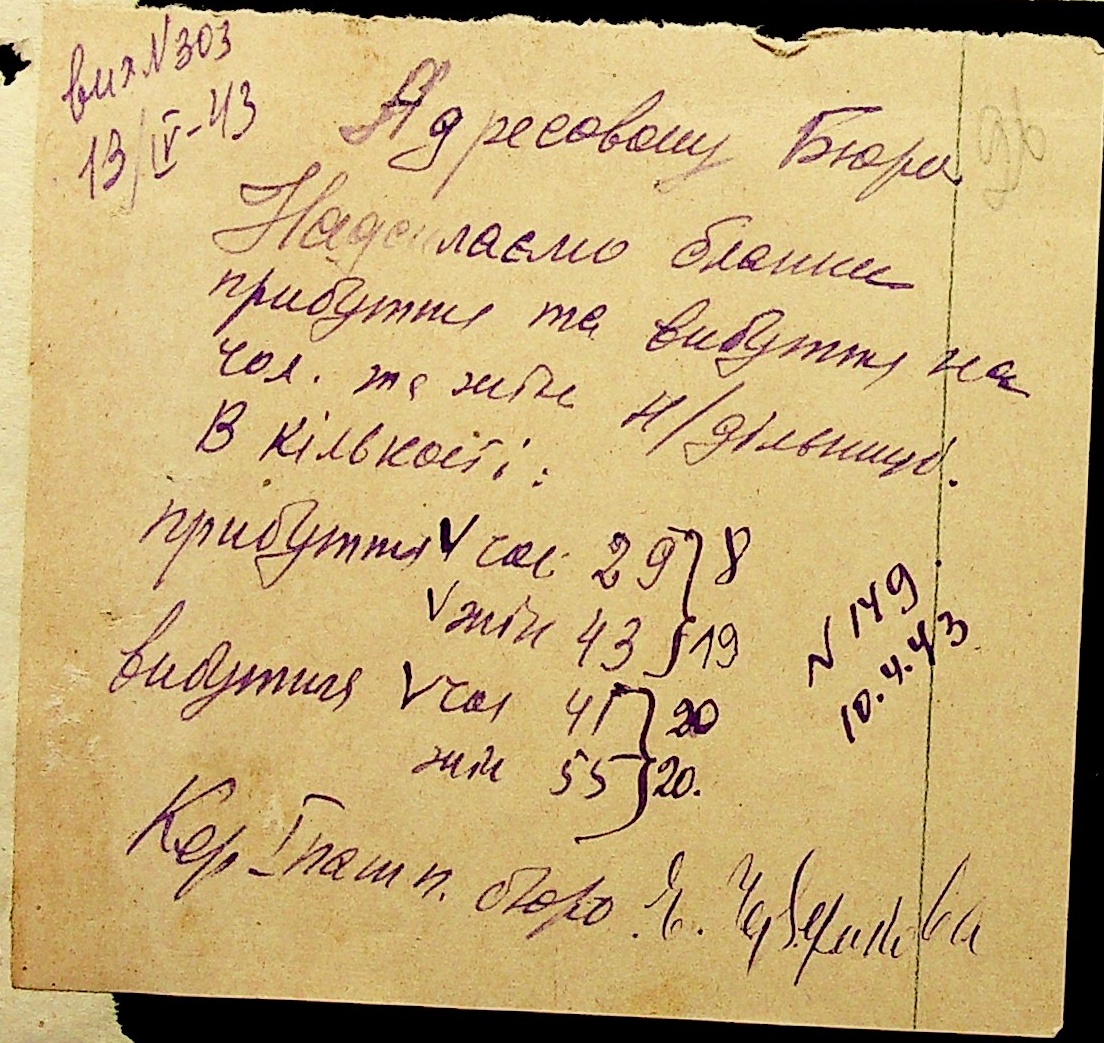 вих N 303
13/IV-43
Адресовому Бюро
Надсилаємо бланки
прибуття та вибуття на
чол. та жін н/дільниці.
В кількості:
прибуття V чол 29 } 8
V жін 43 } 19
вибуття V чол 41 } 20
жін 55 } 20.
N 149
10.4.43
Кер I пашп. бюро Є.